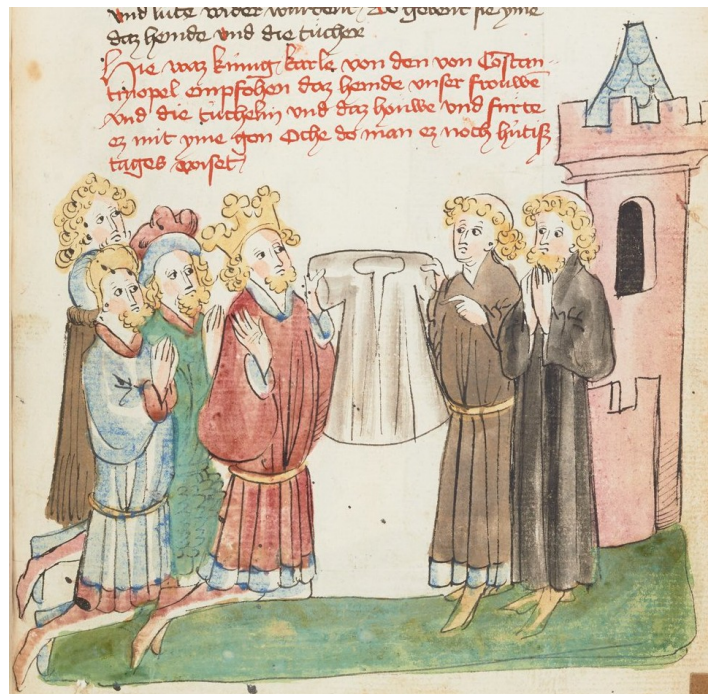 vnd lute wider wurdent Do gobent sie yme
daz hemde vnd die tücher
Hie waz künig karle von den von Costan-
tinopel empfohen daz hemde vnser frouwē
vnd die tüchelin vnd daz houwe vnd furte
ez mit yme gon Oche do man ez noch hütiß
tages wiset